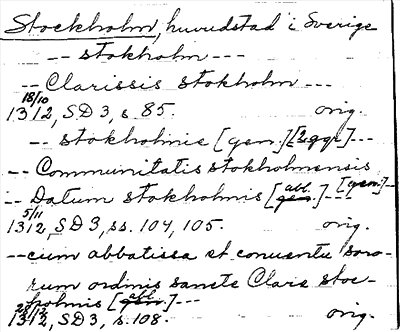 Stockholm, huvudstad i Sverige
-- stokholm ---
-- Clarissis stokholm ---
18/10
1312, SD 3, s. 85. orig.
-- stokholmie [gen.] [2 ggr] ---
-- Communitatis stokholmensis [gen.] --
-- Datum stokholmis [abl.] ---
5/11
1312, SD 3, ss. 104, 105. orig.
-- cum abbatissa et conuentu soro-
rum ordinis sancte Clare stoc-
holmis [abl.] ---
1312, SD 3, s. 108. orig.